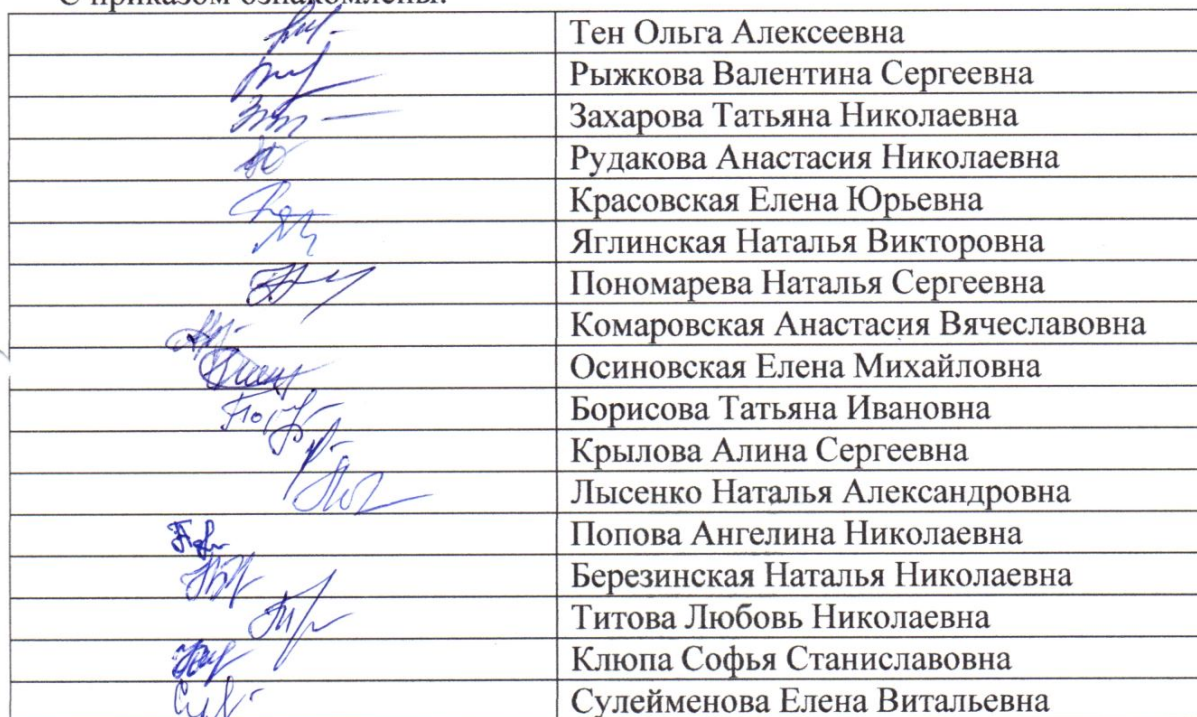 С приказом ознакомлены:
Тен Ольга Алексеевна
Рыжкова Валентина Сергеевна
Захарова Татьяна Николаевна
Рудакова Анастасия Николаевна
Красовская Елена Юрьевна
Яглинская Наталья Викторовна
Пономарева Наталья Сергеевна
Комаровская Анастасия Вячеславовна
Осиновская Елена Михайловна
Борисова Татьяна Ивановна
Крылова Алина Сергеевна
Лысенко Наталья Александровна
Попова Ангелина Николаевна
Березинская Наталья Николаевна
Титова Любовь Николаевна
Клюпа Софья Станиславовна
Сулейменова Елена Витальевна